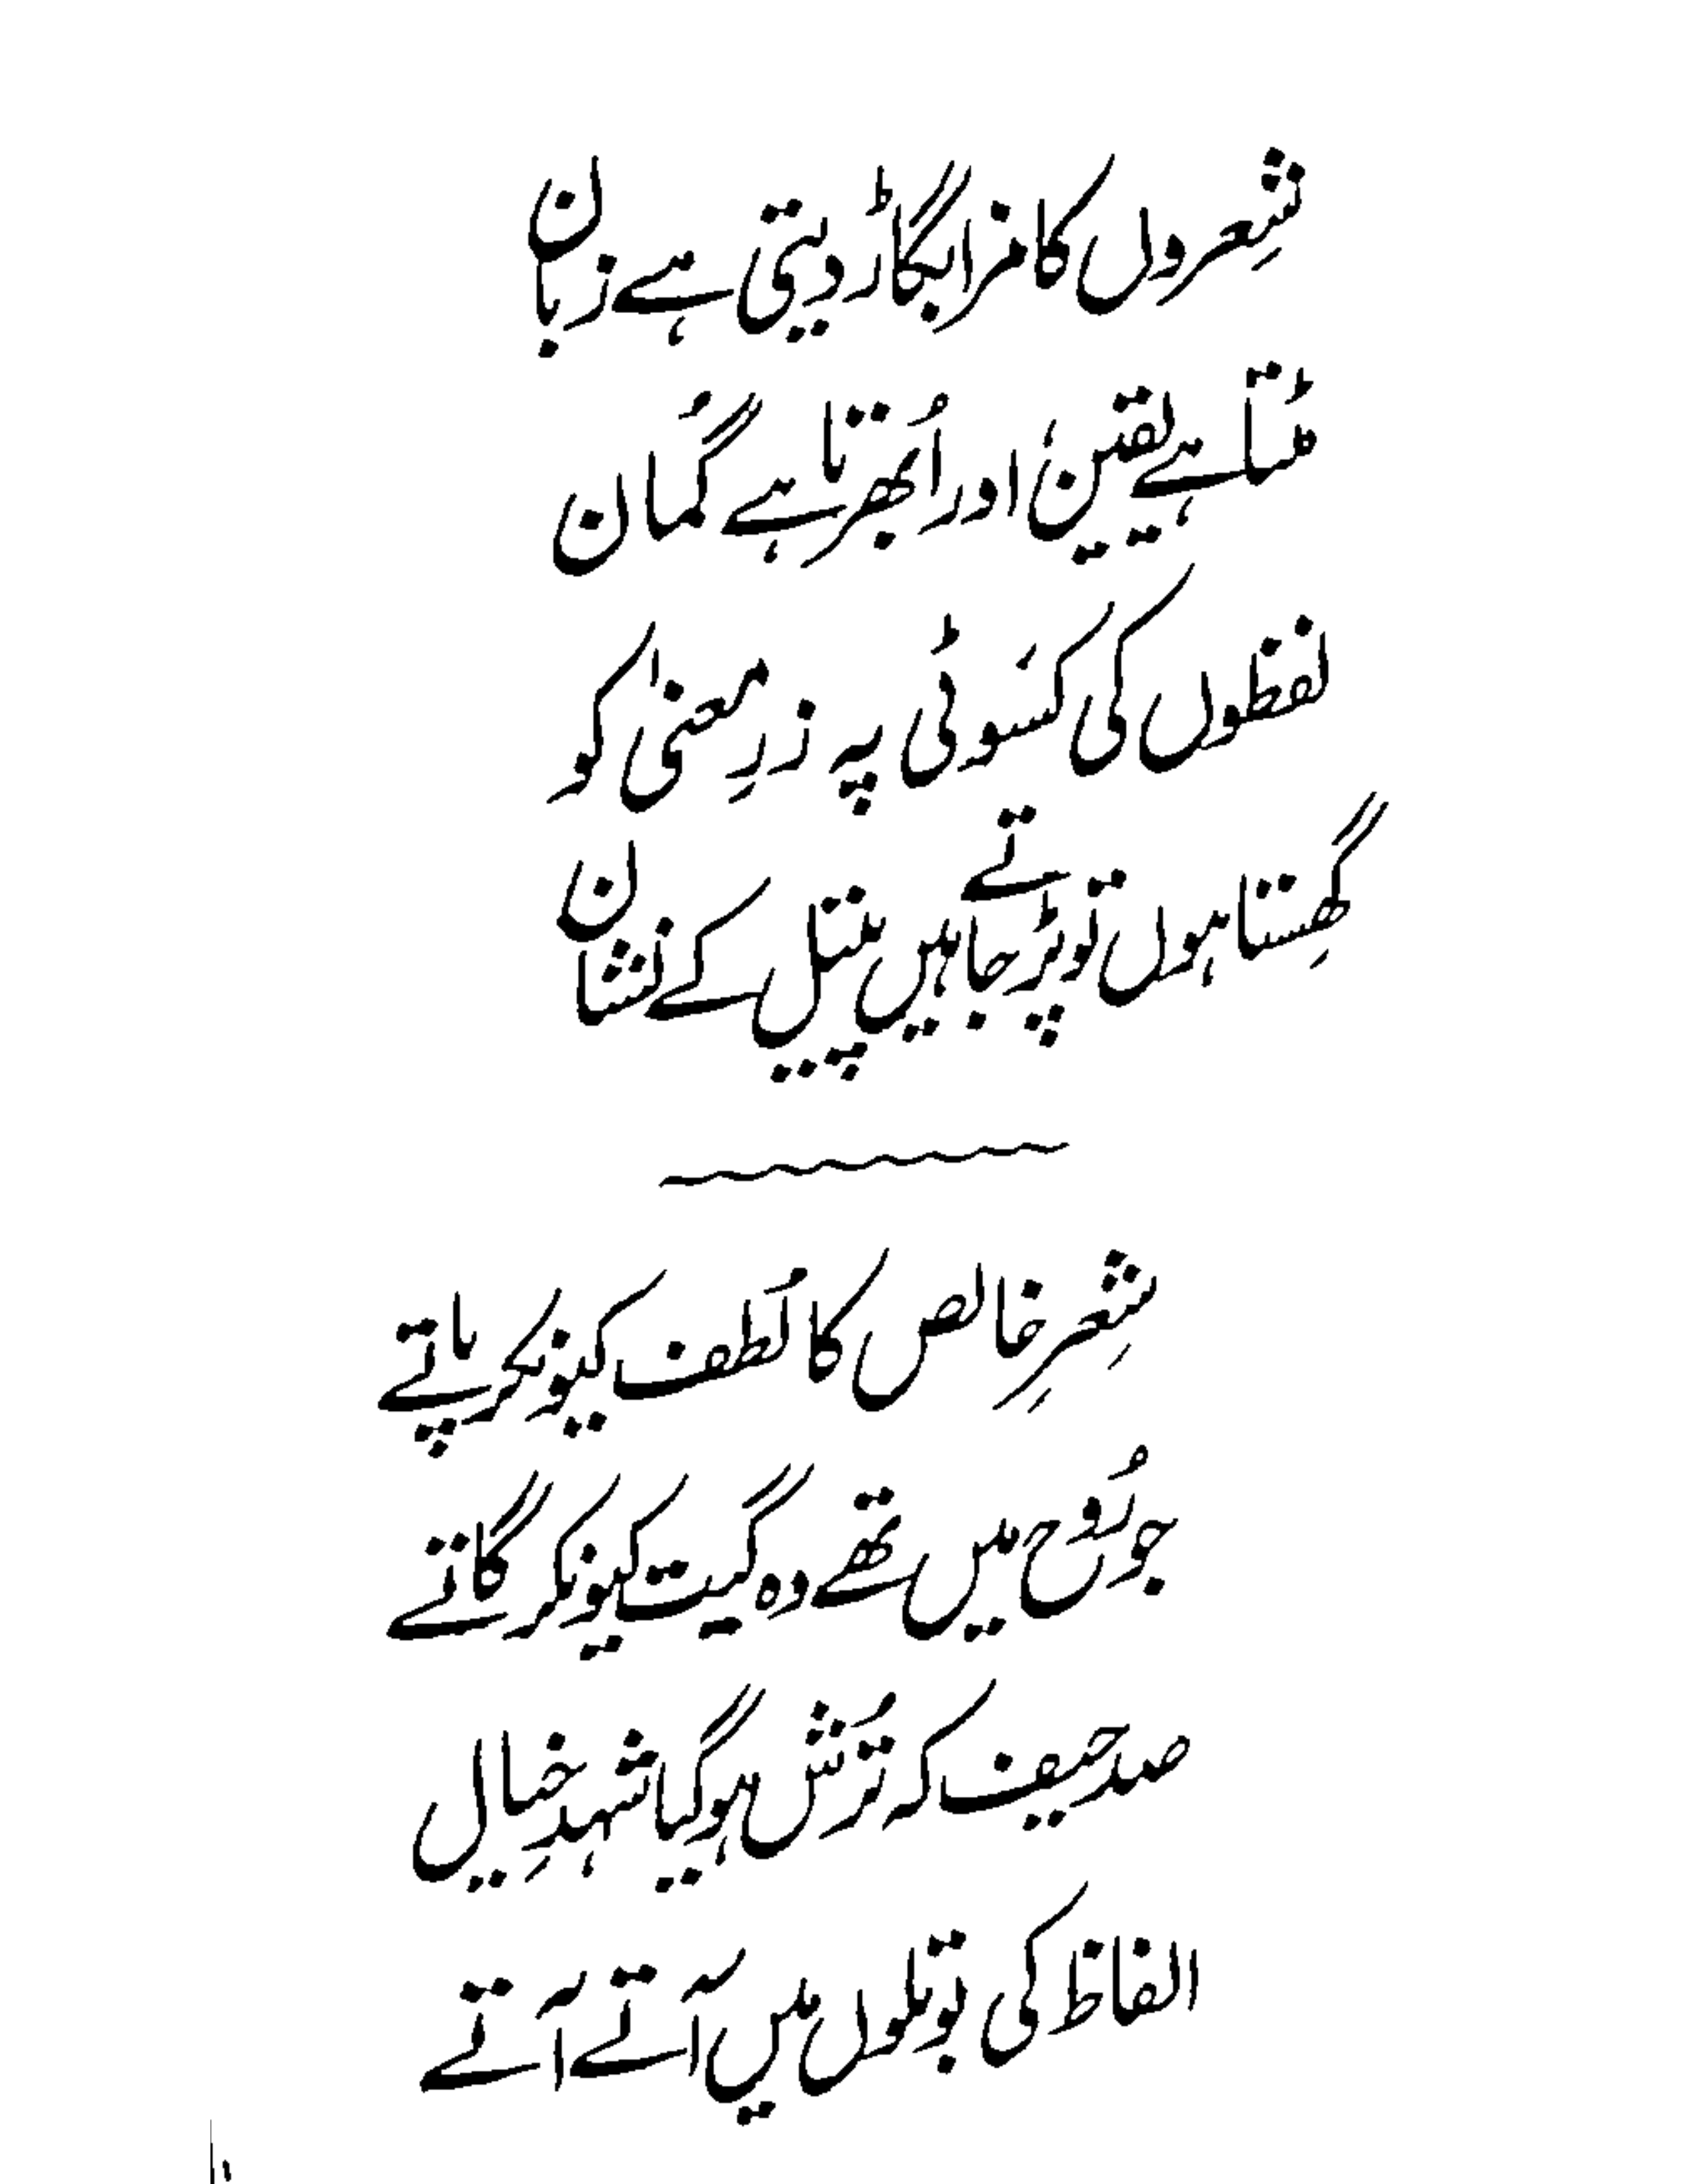 شِعروں کا مزا بگاڑ دیتی ہے زبان
مُٹتا ہے یقین، اور اُبھرتا ہے گُمان
لفظوں کی کَسوٹی پہ زرِ معنیٰ کو
گھِستا ہوں تو پڑ جاتے ہیں پیتل کے نشان
شِعرِ خالص کا لُطف کیونکر پاتے
جو رُوح میں تھے وہ گیت کیونکر گاتے
صد حیف کہ تُرش ہو گیا شہدِ خیال
الفاظ کی بوتلوں میں آتے آتے